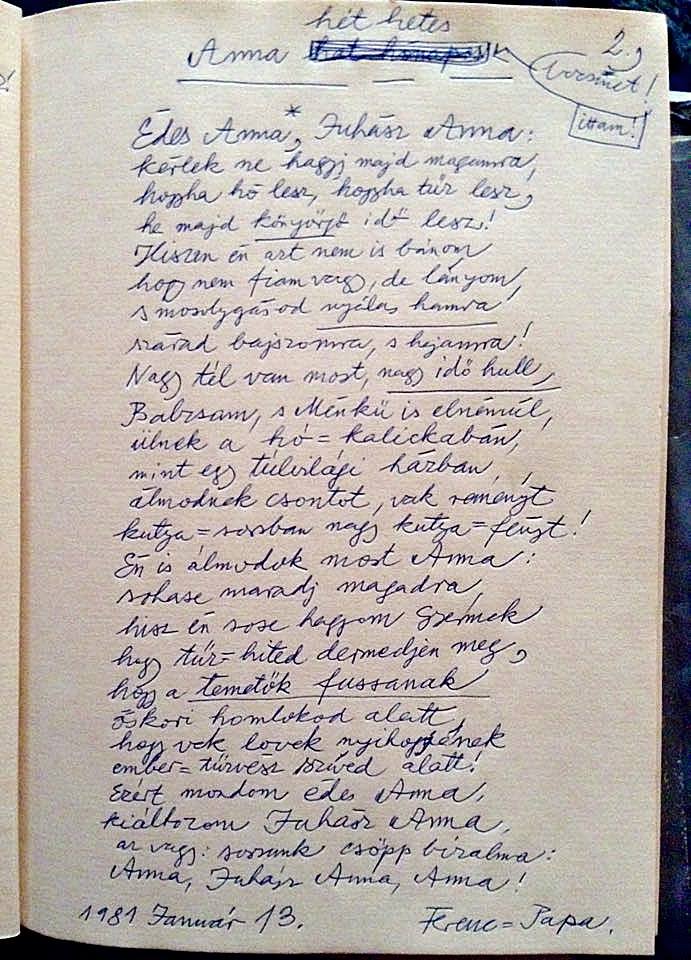 hét hetes
2.,
Anna hat hónapos
versnet!
ittam!
Édes Anna*, Juhász Anna:
kérlek ne hagyj majd magamra,
hogyha hó lesz, hogyha tűz lesz,
he majd könyörgő idő lesz!
Hiszen én azt nem is bánom
hogy nem fiam vagy, de lányom,
s mosolygásod nyálas hamva
szárad bajszomra, s hajamra!
Nagy tél van most, nagy idő hull,
Babcsam, s Ménkü is elnémúl,
ülnek a hó=kalickában,
mint egy túlvilági házban,
álmodnek csontot, vak reményt
kutya=sorsban nagy kutya=fényt!
Én is álmodok most Anna:
sohase maradj magadra,
hisz én sose hagyom Gyermek
hogy tűz=hited dermedjen meg,
hogy a temetők fussanak
őskori homlokod alatt,
hogy vak lovek nyihogjanak
ember=tűzvész szíved alatt!
Ezért mondom édes Anna,
kiáltozom Juhász Anna,
az vagy: sorsunk csöpp bizalma:
Anna, Juhász Anna, Anna!
1981 Január 13.
Ferenc=Papa.